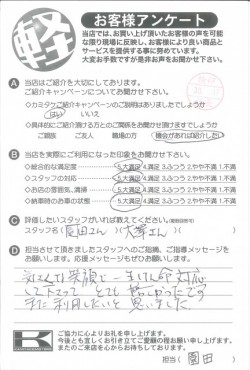 軽
お客様アンケート
当店では、お買い上げ頂いたお客様の声を可能
な限り現場に反映し、お客様により良い商品と
サービスを提供する事に努めています。
大変お手数ですが是非お声をお聞かせ下さい。
A 当店はご紹介を大切にしております。
ご紹介キャンペーンについてお聞かせ下さい。
◇カミタケご紹介キャンペーンのご説明はありましたでしょうか
はい いいえ
◇具体的にご紹介頂ける方との
ご親族 ご友人 職場の方 機会があれば紹介したい
B 当店を実際にご利用になった印象をお聞かせ下さい。
◇総合的な満足度 5.大満足 4.満足 3.ふつう 2.やや不満 1.不満
◇スタッフの対応 5.大満足 4.満足 3.ふつう 2.やや不満 1.不満
◇お店の雰囲気、清掃 5.大満足 4.満足 3.ふつう 2.やや不満 1.不満
◇納車時のお車の状態 5.大満足 4.満足 3.ふつう 2.やや不満 1.不満
C 評価したいスタッフがいれば教えてください。
スタッフ名( 園田さん )( さん )
D 担当させて頂きましたスタッフへのご指摘、ご指導メッセージを
お願いします。応援メッセージもぜひお願いします。
な笑顔で一生けん命対応
して下さって とても
利用したいと思いました
K
ご協力に心よりお礼を申し上げます。
今後とも宜しくお引き立てご愛顧の程お願い申し上げます。
またのご来店を心からお待ちしております。
担当( 園田 )